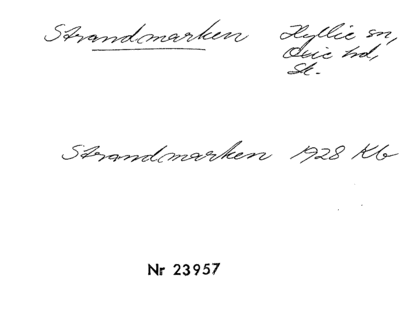 Strandmarken Hyllie sn,
Oxie hd,
Sk.
Strandmarken 1928 Kb
Nr 23957